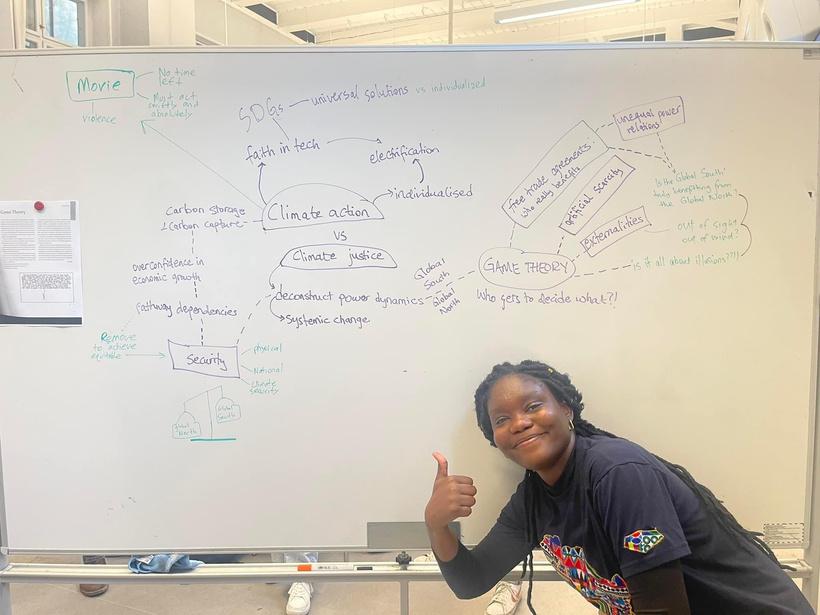 Movie
No time
left
Must act
swiftly and
absolutely
violence
SDGs
universal solutions vs individualized
faith in tech
electrification
individualised
Climate action
Carbon storage
& Carbon capture
vs
Climate justice
overconfidence in
economic growth
deconstruct power dynamics
Systemic change
pathway dependencies
Remove
to achieve
equitable
Security
physical
National
climate
security
Global
North
Global
South
Global
South
Global
North
GAME THEORY
Who gets to decide what?!
free trade agreements:
who really benefits
artificial scarcity
externalities
unequal power
relations
Is the Global South
benefiting from
the Global North?
out of sight
out of mind?
is it all about illusions???!!
Game Theory